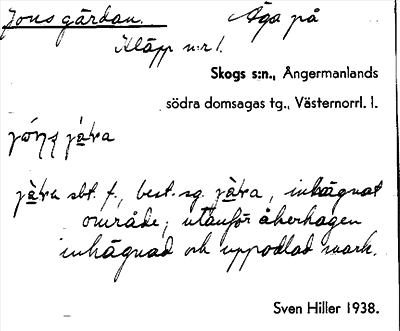 Jons gårdan. Äga på
Kläpp nr 1.
Skogs s:n., Ångermanlands
södra domsagas tg., Västernorrl. l.
jó̀ns jä̀ra
jä̀ra sbt. f., best. sg. jä̀ra, inhägnat
område; utanför åkerhagen
inhägnad och uppodlad mark.
Sven Hiller 1938.